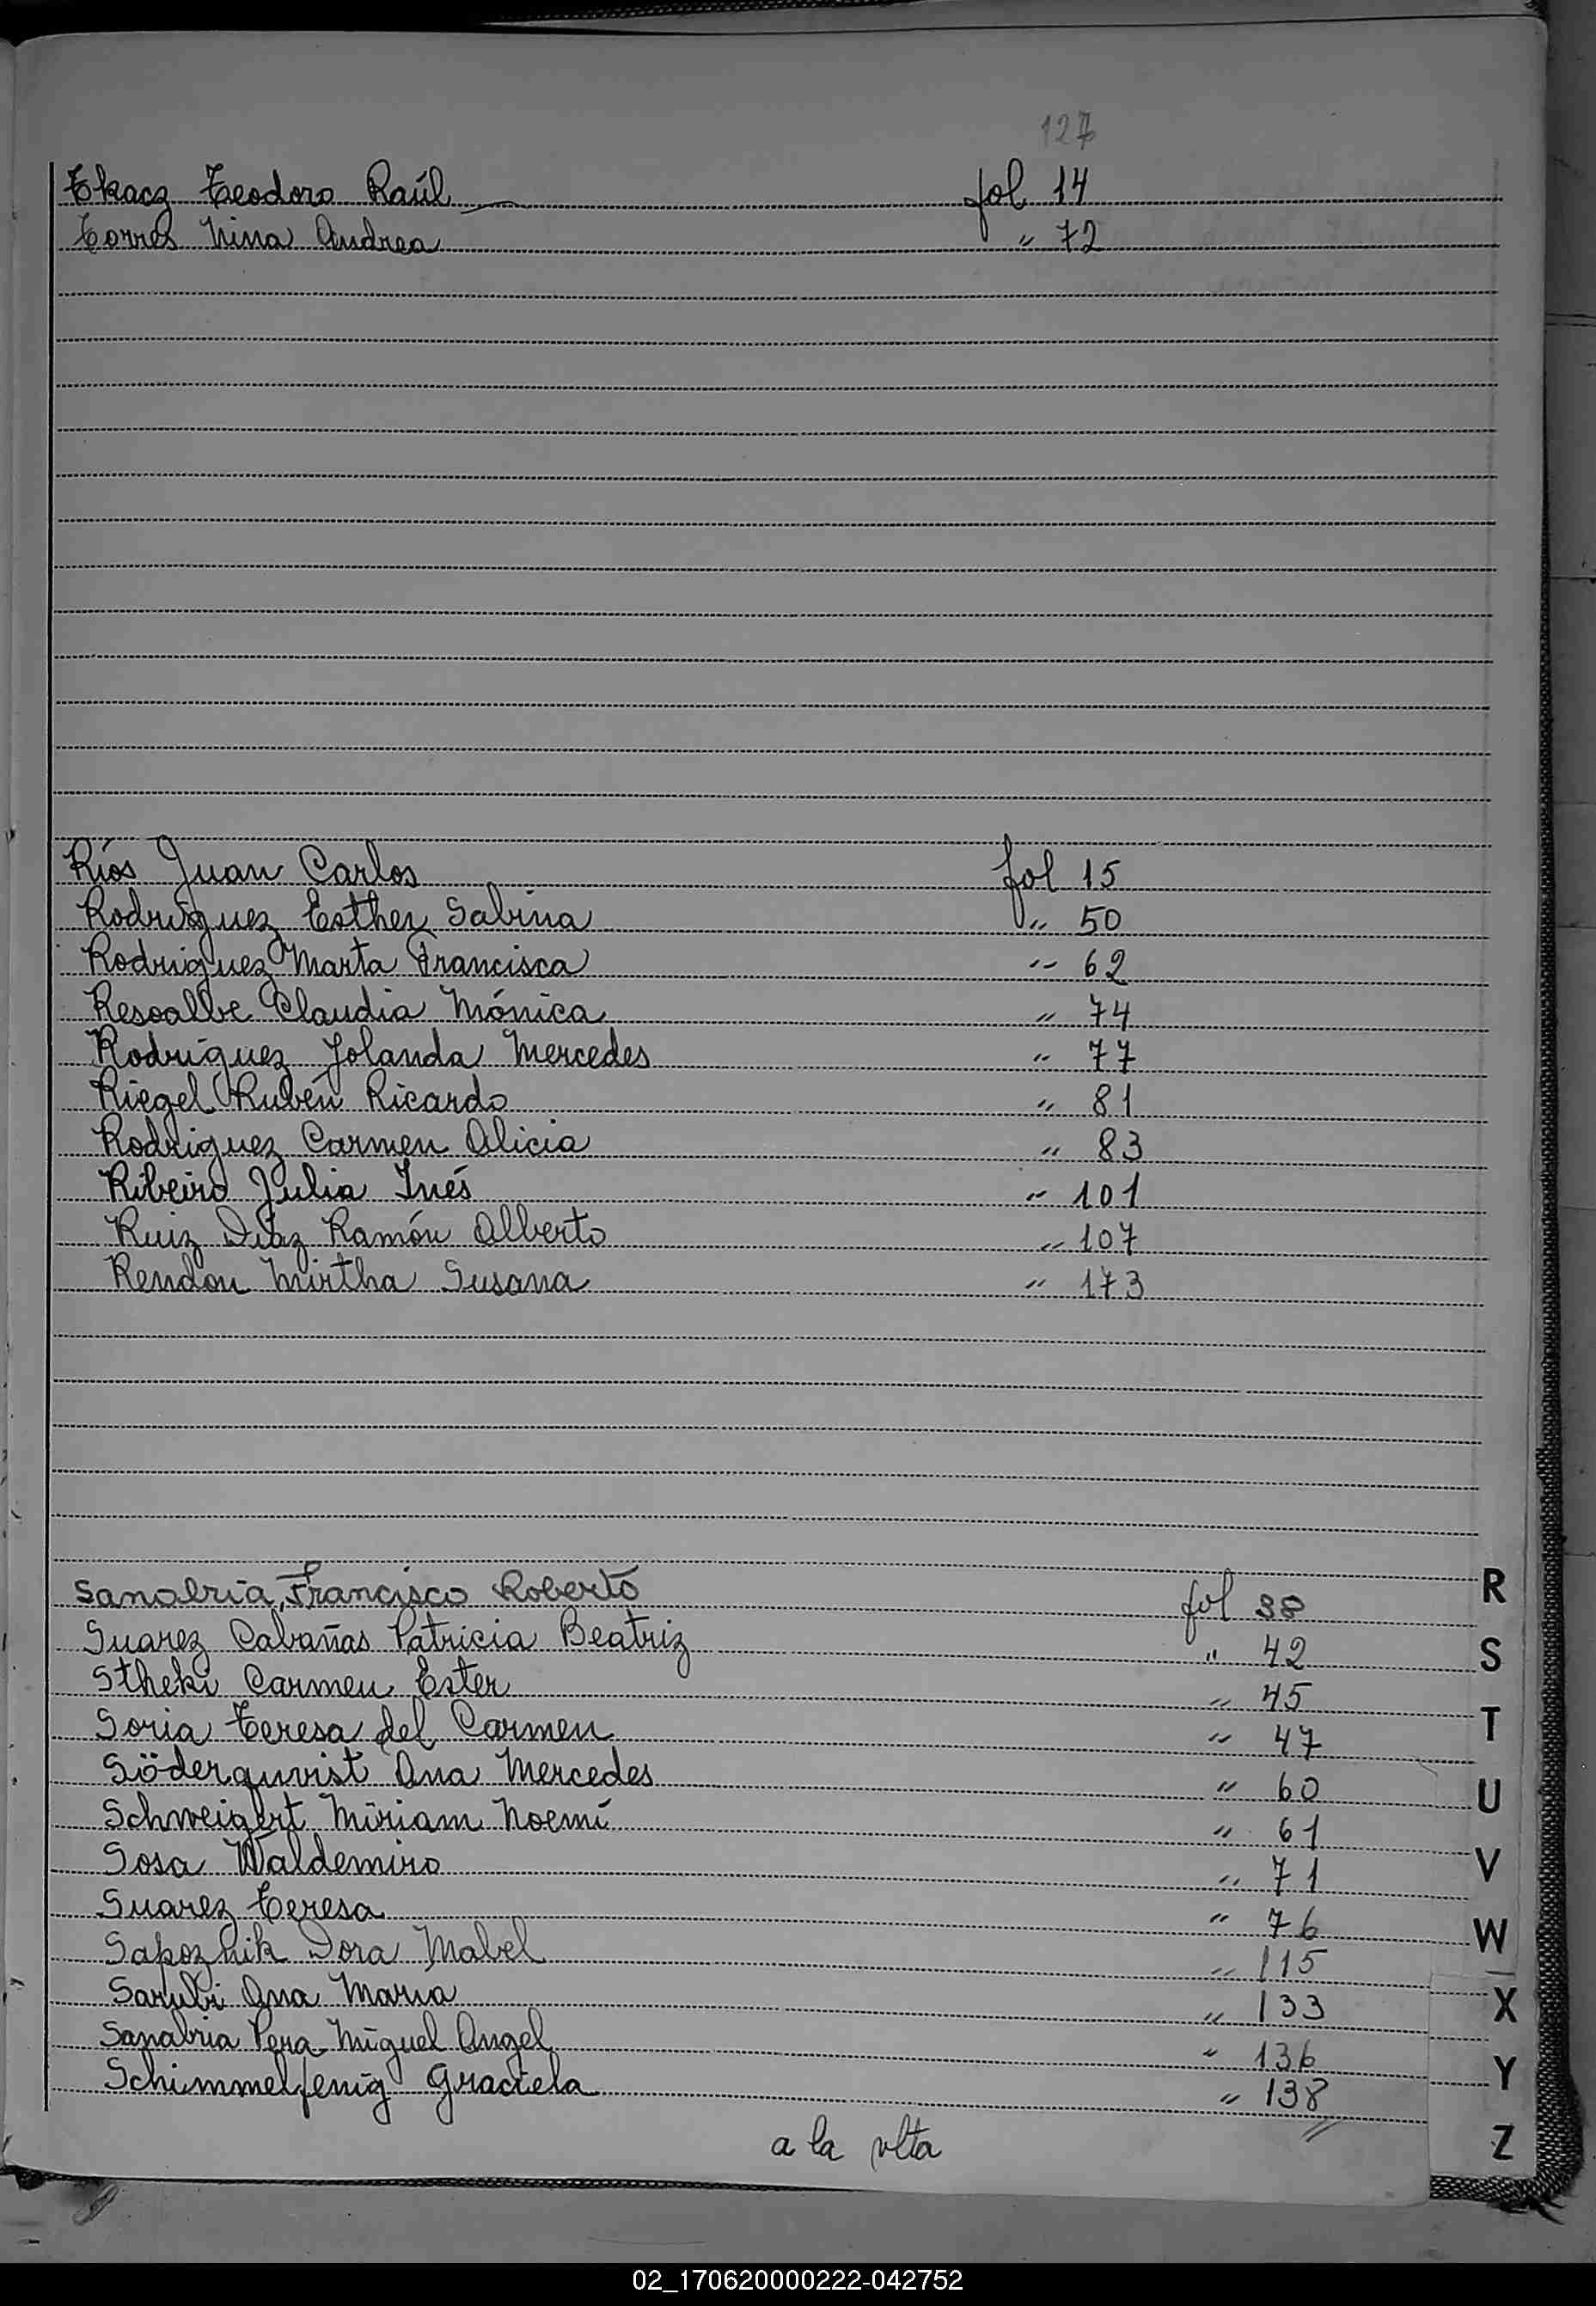 127
Tkacz Teodoro Raúl fol 14
Torres Nina Andrea " 72
Ríos Juan Carlos fol 15
Rodriguez Esther Sabina " 50
Rodriguez Marta Francisca " 62
Resoalbe Claudia Mónica " 74
Rodríguez Yolanda Mercedes " 77
Riegel Rubén Ricardo " 81
Rodriguez Carmen Alicia " 83
Ribeiro Julia Inés " 101
Ruiz Díaz Ramón Alberto " 107
Rendon Mirtha Susana " 173
Sanabria, Francisco Roberto fol 38
Suarez Cabañas Patricia Beatriz " 42
Stheki Carmen Ester " 45
Soria Teresa del Carmen " 47
Söderquvist Ana Mercedes " 60
Schweigert Miriam Noemí " 61
Sosa Waldemiro " 71
Suarez Teresa " 76
Sapoznik Dora Mabel " 115
Sarubi Ana Maria " 133
Sanabria Pera Miguel Angel " 136
Schimmelfenig Graciela " 138
a la vlta
R
S
T
U
V
W
X
Y
Z
02_170620000222-042752